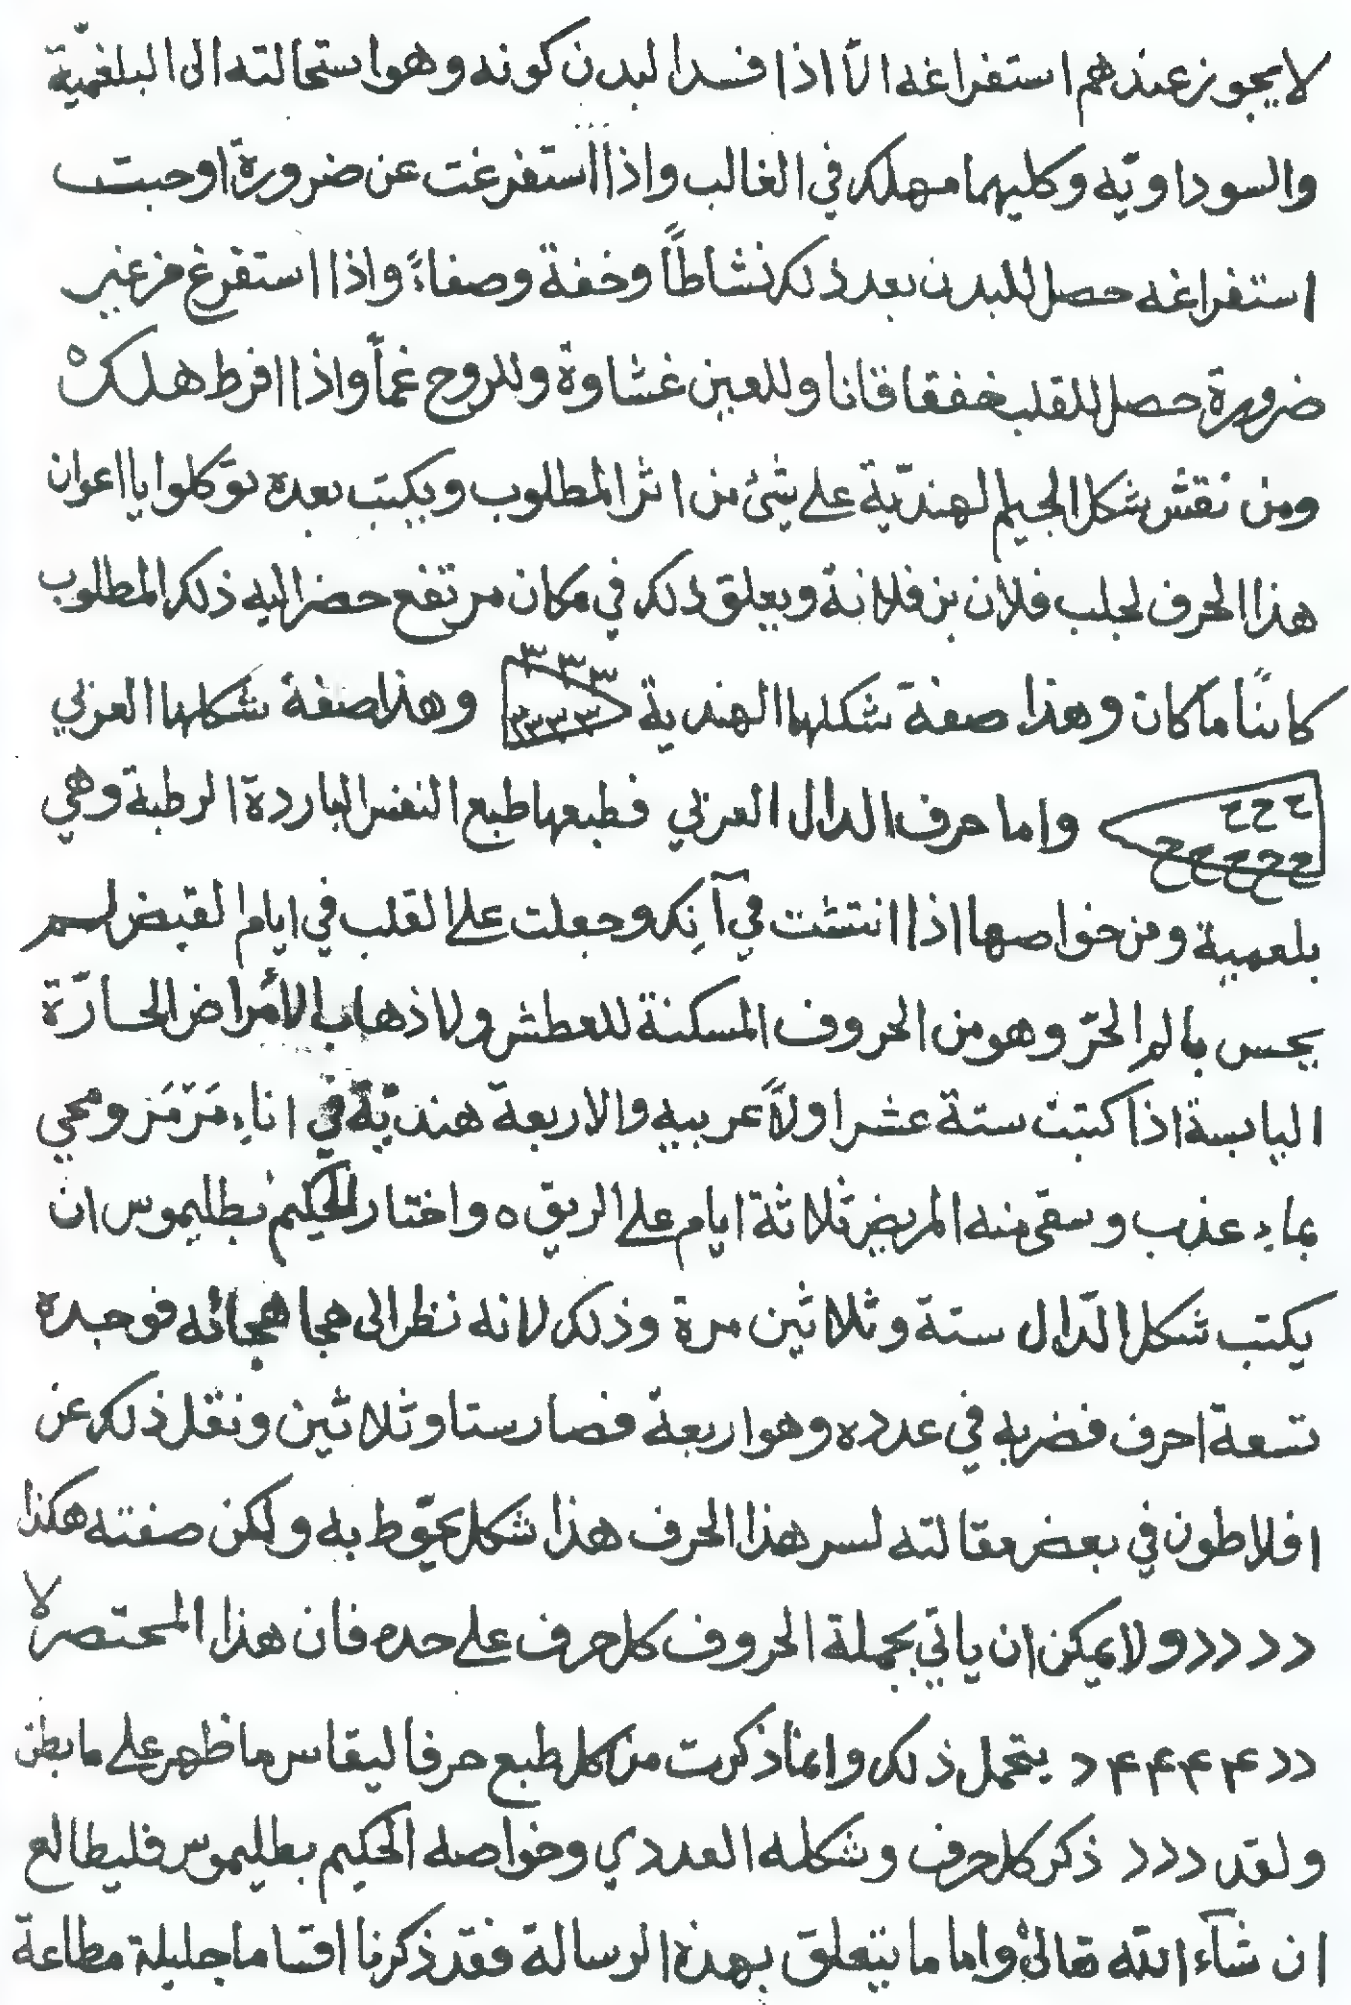 لا يجوز عندهم استفراغه الّا اذا فسد البدن كونه وهو استحالته الى البلغميّة
والسوداويّه وكليهما مهلكه في الغالب واذا استفرغت عن ضرورة اوجبت
استفراغه حصل للبدن بعد ذلك نشاطاً وخفة وصفاءً واذا استفرغ من غير
ضرورة حصل للقلب خفقاقانا وللعين غشاوة وللروح غماً واذا افرط هلك
ومن نقش شكل الجيم الهنديّة على شئ من اثر المطلوب ويكتب بعده توكلوا يا اعوان
هذا الحرف لجلب فلان بن فلانة ويعلق ذلك في مكان مرتفع حضر اليه ذلك المطلوب
كائنًا ما كان وهذا صفة شكلها الهندية ٣ ٣ ٣ ٣ ٣ ٣ ٣ وهذا صفة شكلها العربي
ح ح ح ح ح ح ح ح واما حرف الدال العربي فطبعها طبع النفس الباردة الرطبة وهي
بلغمية ومن خواصها اذا انتقشت في آنك وجعلت على القلب في ايام القيض لم
يحس بالم الحرّ وهو من الحروف المسكنة للعطش ولاذهاب الأمراض الحارّة
اليابسة اذا كتبت ستة عشر اولاً عربيه والاربعة هنديّة في اناء مَرْمَر ومحي
بماء عذب وسقى منه المريض ثلاثة ايام على الريق ه واختار الحكيم بطليموس ان
يكتب شكل الدّال ستة وثلاثين مرة وذلك لانه نظر الى هجا هجائه فوجده
تسعة احرف فضربه في عدده وهو اربعة فصار ستا وثلاثين ونقل ذلك عن
افلاطون في بعض مقالته لسر هذا الحرف هذا شكل يحوّط به ولكن صفته هكذا
د د د د د ولا يمكن ان ياتي بجملة الحروف كل حرف على حده فان هذا المختصر لا
د د ۴ ۴ ۴ ۴ د يتحمل ذلك وانما ذكرت من كل طبع حرفا ليقاس ما ظهر على ما بطن
ولقد د د د د ذكر كل حرف وشكله العددي وخواصه الحكيم بطليموس فليطالع
ان شآء الله تعالى واما ما يتعلق بهذه الرسالة فقد ذكرنا اقساما جليلة مطاعة